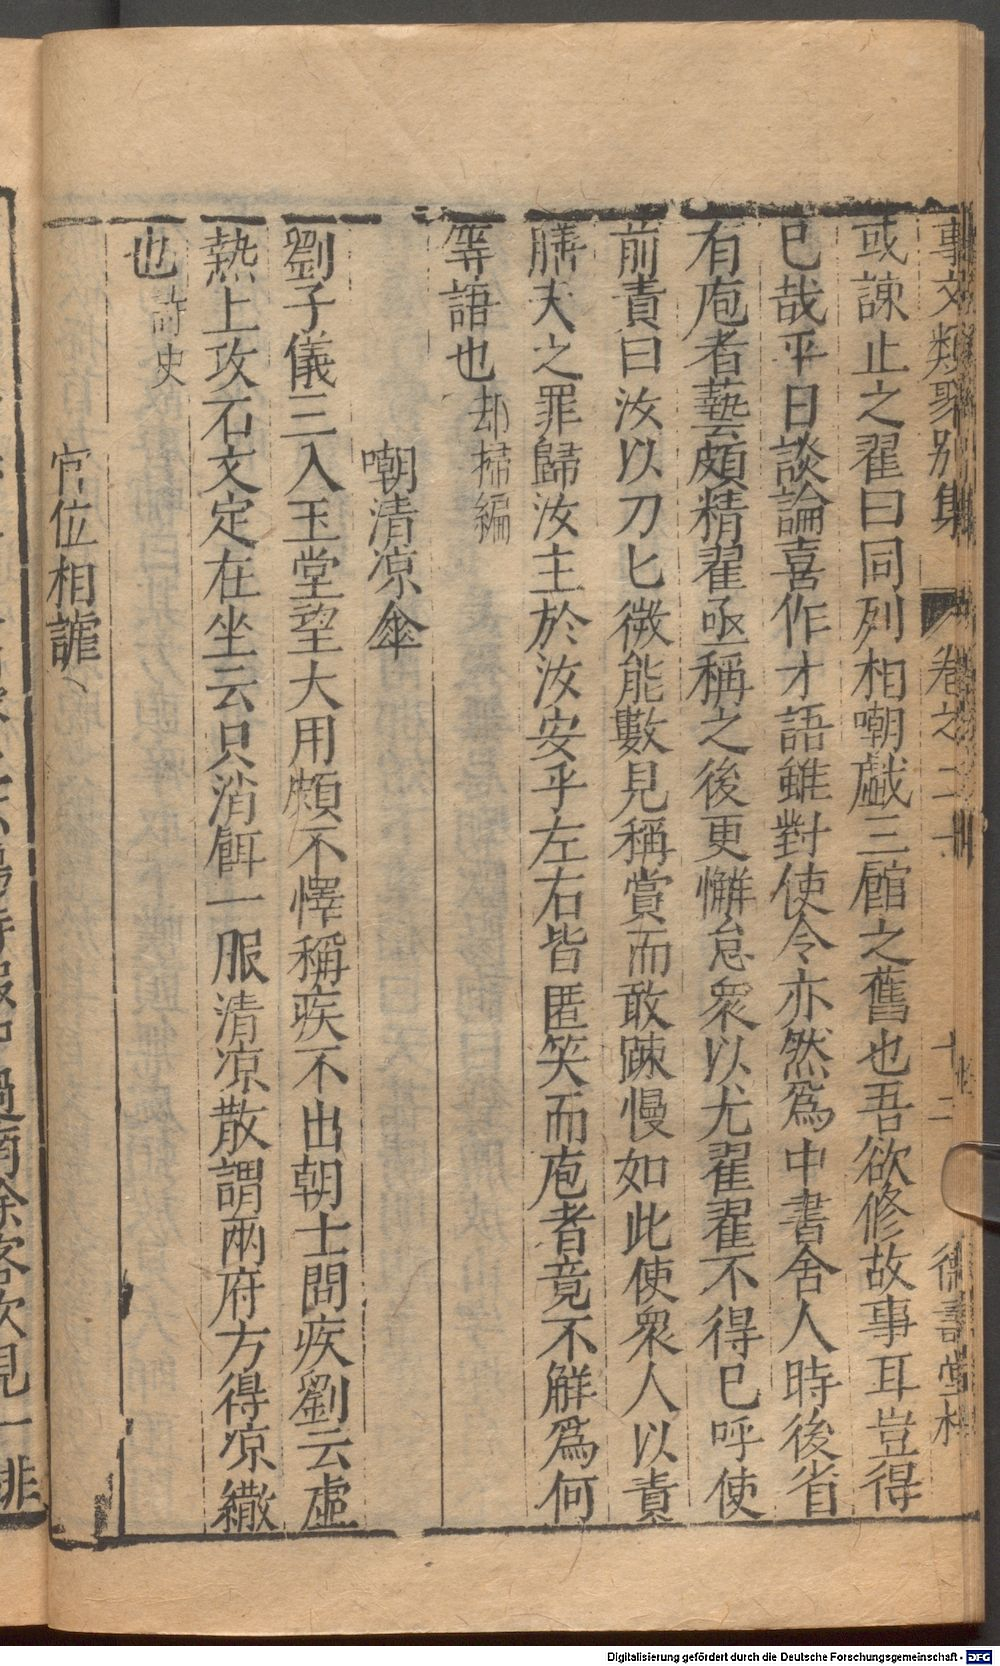 事文類聚別集 卷之二十 十二 德壽堂梓
或諫止之翟曰同列相嘲戱三館之舊也吾欲修故事耳豈得
已哉平日談論喜作才語雖對使令亦然爲中書舍人時後省
有庖者藝頗精翟亟稱之後更懈怠衆以尤翟翟不得已呼使
前責曰汝以刀匕微能數見稱賞而敢踈慢如此使衆人以責
膳夫之罪歸汝主於汝安乎左右皆匿笑而庖者竟不觧爲何
等語也却掃編
嘲清凉傘
劉子儀三入玉堂望大用頗不懌稱疾不出朝士問疾劉云虛
熱上攻石文定在坐云只消餌一服清凉散謂兩府方得凉繖
也詩史
官位相謔
Digitalisierung gefördert durch die Deutsche Forschungsgemeinschaft - DFG